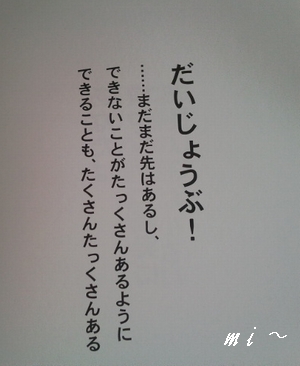 だいじょうぶ！
……まだまだ先はあるし、
できないことがたっくさんあるように
できることも、たくさんたっくさんある
mi～